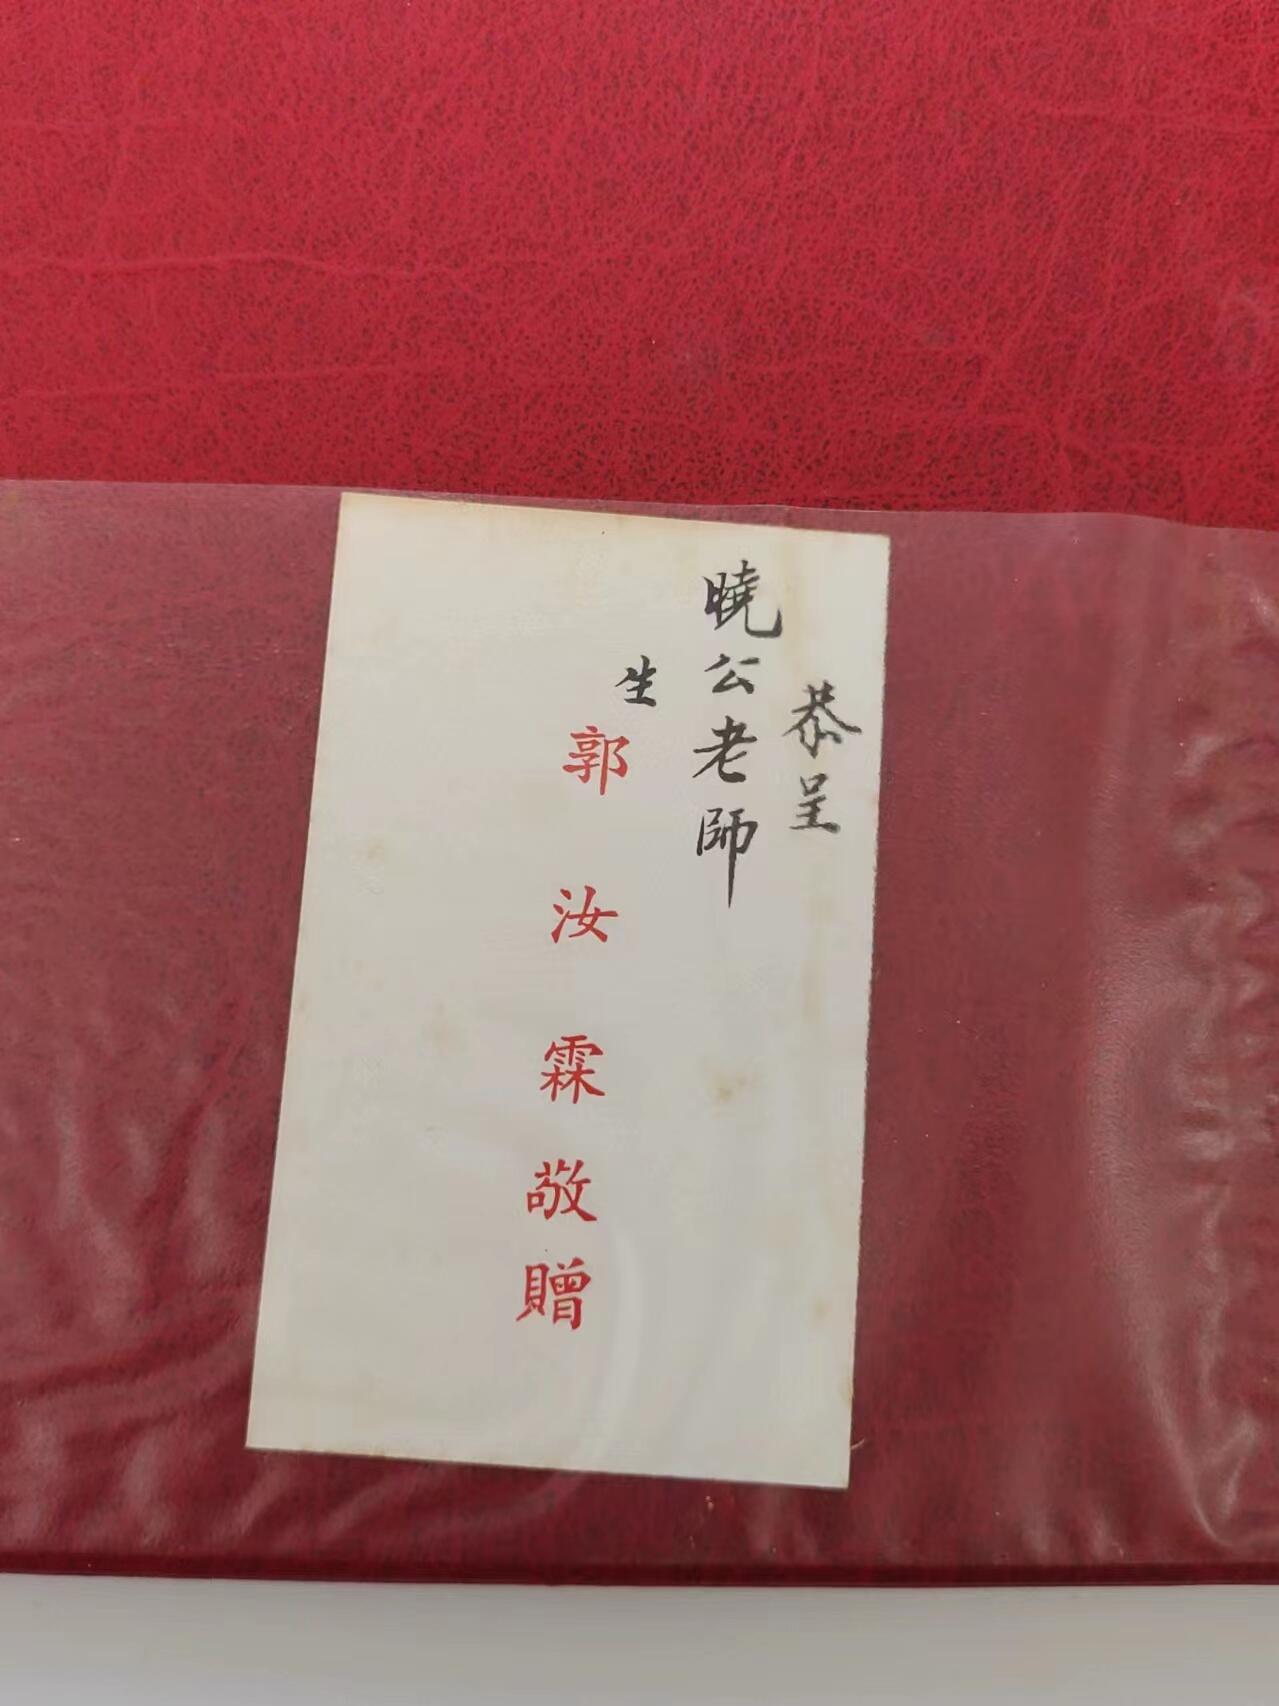 恭呈
曉公老師
生
郭汝霖敬贈